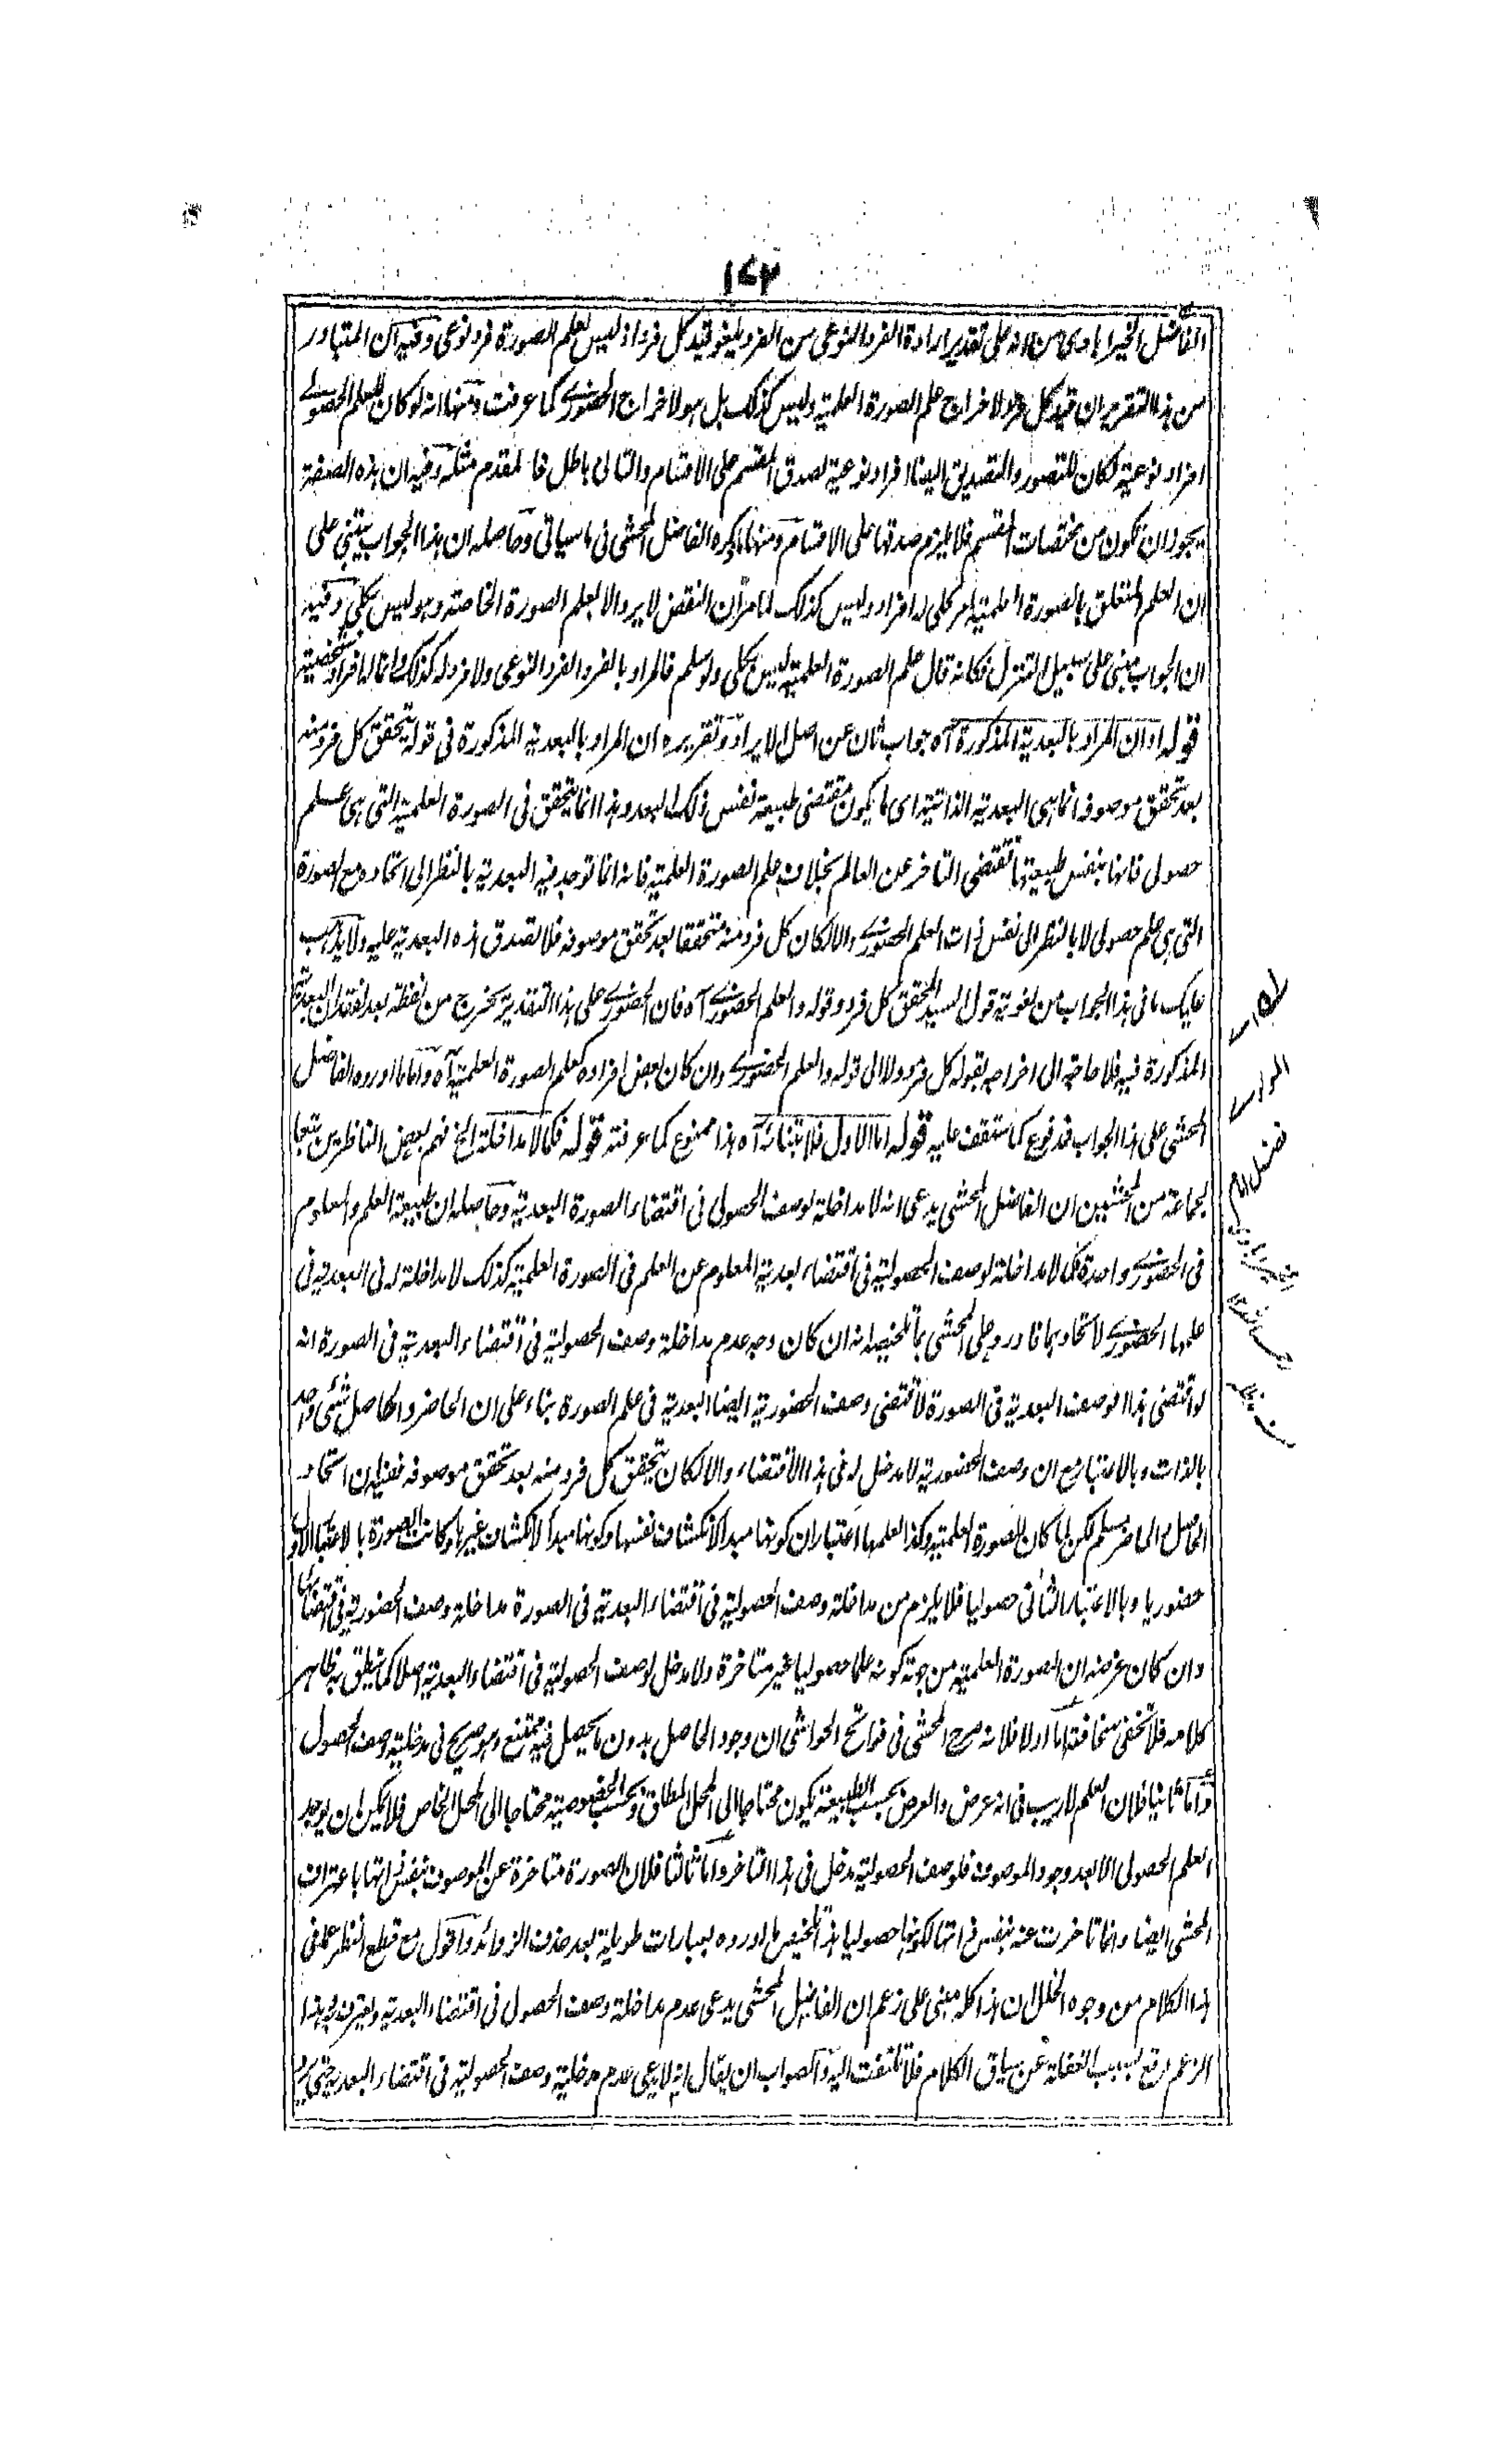 ١٧٢
الفاضل الخيرابادى من انه على تقدير ارادة الفرد النوعى من الفرد يلغو قيد كل فرد اذ ليس لعلم الصورة فرد نوعى وفيه ان المتبادر
من هذا التقرير ان قيد كل فرد لاخراج علم الصورة العلمية وليس كذلك بل هو لاخراج الحضورى كما عرفت ومنها انه لو كان للعلم الحضورى
افراد نوعية لكان للتصور والتصديق ايضا افراد نوعية لصدق المقسم على الاقسام والتالى باطل فالمقدم مثله وفيه ان هذه الصفة
يجوز ان تكون من مختصات المقسم فلا يلزم صدقها على الاقسام ومنها ما ذكره الفاضل المحشى فى ما سياتى وحاصله ان هذا الجواب يبتنى على
ان العلم المتعلق بالصورة العلمية امر كلى له افراد وليس كذلك لما مر ان النقض لا يرد الا بعلم الصورة الخاصة وهو ليس بكلى وفيه
ان الجواب مبنى على سبيل التنزل فكانه قال علم الصورة العلمية ليس بكلى ولو سلم فالمراد بالفرد الفرد النوعى ولا فرد له كذلك وانما لها افراد شخصية
قوله او ان المراد بالبعدية المذكورة آه جواب ثان عن اصل الايراد وتقريره ان المراد بالبعدية المذكورة فى قوله تحقق كل فرد منه
بعد تحقق موصوفه انما هى البعدية الذاتية اى ما يكون مقتضى طبيعة نفس ذلك البعد وهذا انما يتحقق فى الصورة العلمية التى هى علم
حصولى فانها بنفس طبيعتها تقتضى التاخر عن العالم بخلاف علم الصورة العلمية فانه انما توجد فيه البعدية بالنظر الى اتحاده مع الصورة
التى هى علم حصولى لا بالنظر الى نفس ذات العلم الحضورى والا لكان كل فرد منه متحققا بعد تحقق موصوفه فلا تصدق هذه البعدية عليه ولا يذهب
عليك ما فى هذا الجواب من لغوية قول السيد المحقق كل فرد وقوله والعلم الحضورى آه فان الحضورى على هذا التقدير يخرج من لفظة بعد لفقدان البعدية
المذكورة فيه فلا حاجة الى اخراجه بقوله كل فرد ولا الى قوله والعلم الحضورى وان كان بعض افراده كعلم الصورة العلمية آه واما ما اورده الفاضل
المحشى على هذا الجواب فمدفوع كما ستقف عليه قوله اما الاول فلابتنائه آه هذا ممنوع كما عرفته قوله فكما لا مداخلة الخ فهم بعض الناظرين تبعا
لجماعة من المحشيين ان الفاضل المحشى يدعى انه لا مداخلة لوصف الحصولى فى اقتضاء الصورة البعدية وحاصله ان طبيعة العلم والمعلوم
فى الحضورى واحدة فكما لا مداخلة لوصف الحصولية فى اقتضاء بعدية المعلوم عن العلم فى الصورة العلمية كذلك لا مداخلة له فى البعدية فى
علمها الحضورى لاتحادهما فاورد على المحشى بما تلخيصه انه ان كان وجه عدم مداخلة وصف الحصولية فى اقتضاء البعدية فى الصورة انه
لو اقتضى هذا الوصف البعدية فى الصورة لاقتضى وصف الحضورية ايضا البعدية فى علم الصورة بناء على ان الحاضر والحاصل شئ واحد
بالذات وبالاعتبار مع ان وصف الحضورية لا مدخل له فى هذا الاقتضاء والا لكان تحقق كل فرد منه بعد تحقق موصوفه ففيه ان اتحاد
الحاصل والحاضر مسلم لكن لما كان للصورة العلمية وكذا لعلمها اعتباران كونها مبدأ لانكشاف نفسها وكونها مبدأ لانكشاف غيرها وكانت الصورة بالاعتبار الاول
حضوريا وبالاعتبار الثانى حصوليا فلا يلزم من مداخلة وصف الحصولية فى اقتضاء البعدية فى الصورة مداخلة وصف الحضورية فى اقتضائها
وان كان غرضه ان الصورة العلمية من جهة كونه علما حصوليا غير متاخرة ولا مدخل لوصف الحصولية فى اقتضاء البعدية اصلا كما ينطق به ظاهر
كلامه فلا تخفى سخافته اما اولا فلانه صرح المحشى فى فواتح الحواشى ان وجود الحاصل بدون ما يحصل فيه ممتنع وهو صريح فى مدخلية وصف الحصول
واما ثانيا فلان العلم لا ريب فى انه عرض والعرض بحسب الطبيعة يكون محتاجا الى المحل المطلق وبحسب الخصوصية محتاجا الى المحل الخاص فلا يمكن ان يوجد
العلم الحصولى الا بعد وجود الموصوف فلوصف الحصولية مدخل فى هذا التاخر واما ثالثا فلان الصورة متاخرة عن الموصوف بنفس ذاتها باعتراف
المحشى ايضا وانما تاخرت عنه بنفس ذاتها لكونها حصوليا هذا تلخيص ما اورده بعبارات طويلة بعد حذف الزوائد واقول مع قطع النظر عما فى
هذا الكلام من وجوه الخلل ان هذا كله مبنى على زعم ان الفاضل المحشى يدعى عدم مداخلة وصف الحصول فى اقتضاء البعدية ولعمرى هذا
الزعم وقع بسبب الغفلة عن سياق الكلام فلا تلتفت اليه والصواب ان يقال انه لا يدعى عدم مدخلية وصف الحصولية فى اقتضاء البعدية حتى يرد
المولوى
فضل امام
الخيرابادى